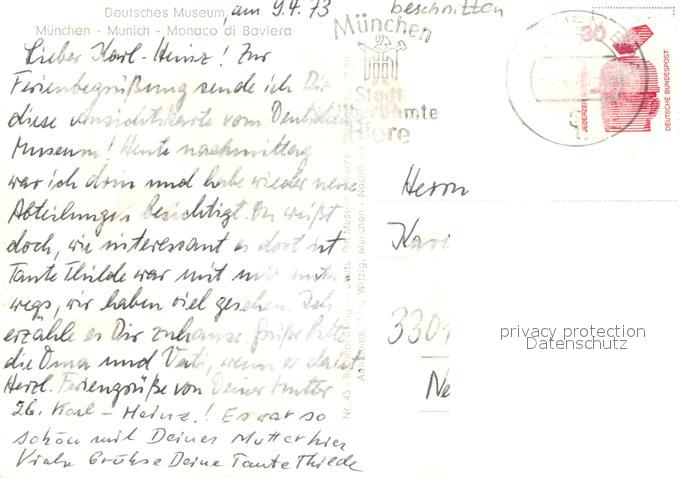 Deutsches Museum, am 9.4.73
München - Munich - Monaco di Baviera
beschnitten
Lieber Karl-Heinz! Zur
Ferienbegrüßung sende ich Dir
diese Ansichtskarte vom Deutschen
Museum! Heute nachmittag
war ich drin und habe wieder neue
Abteilungen besichtigt. Du weißt
doch, wie interessant es dort ist
Tante Thilde war mit mir unter
wegs, wir haben viel gesehen. Ich
erzähle es Dir zuhause. Grüße bitte
die Oma und Vati, wenn er da ist
Herzl. Feriengrüße von Deiner Mutter
Lb. Karl-Heinz! Es war so
schön mit Deiner Mutter hier
Viele Grühse Deine Tante Thilde
München
Stadt
berühmte
Tore
30
JEDERZEIT
DEUTSCHE BUNDESPOST
Herrn
Karl
3301
Ne
privacy protection
Datenschutz